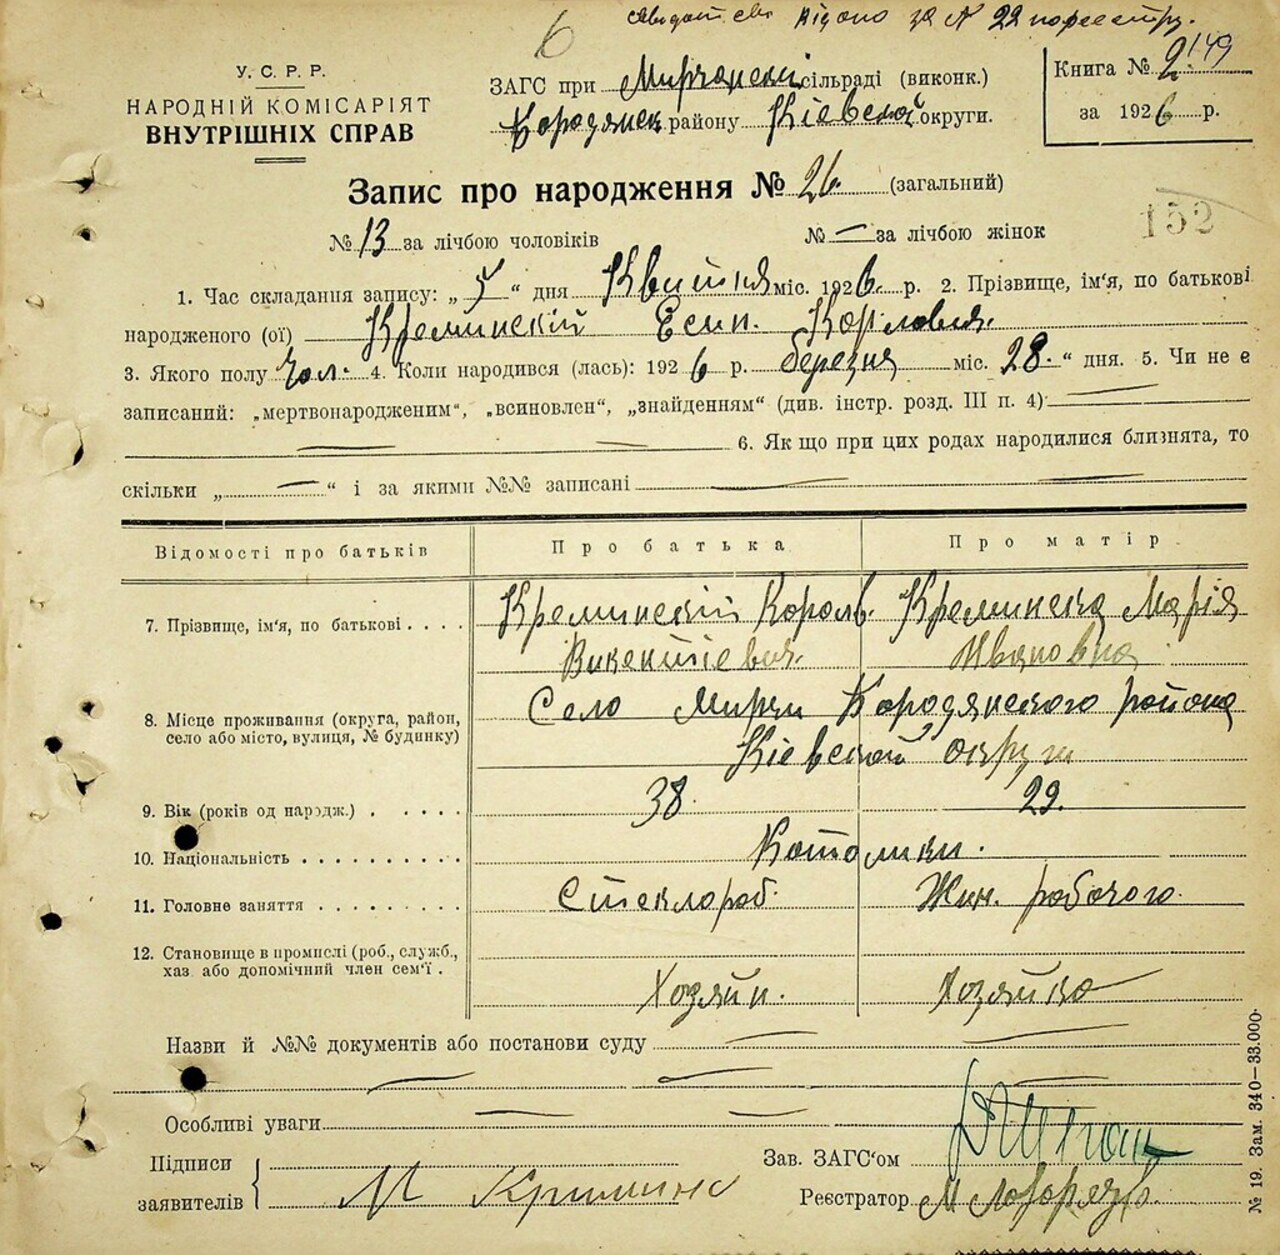 Видано за № 22 по реестру.
6
У. С. Р. Р.
НАРОДНІЙ КОМІСАРІЯТ
ВНУТРІШНІХ СПРАВ
ЗАГС при Мирчанскі сільраді (виконк.)
Бородянск району Кіевской округи.
Книга № 2 149
за 1926 р.
Запис про народження № 26. (загальний)
152
№ 13 за лічбою чоловіків № — за лічбою жінок
1. Час складання запису: „ 5 “ дня Квитня міс. 1926. р. 2. Прізвище, ім‘я, по батькові
народженого (ої) Креминскій Есип. Корловия.
3. Якого полу Чол. 4. Коли народився (лась): 1926 р. березня міс. 28. “ дня. 5. Чи не є
записаний: „мертвонародженим“, „всиновлен“, „знайденням“ (див. інстр. розд. III п. 4) —
— — 6. Як що при цих родах народилися близнята, то
скільки „ — “ і за якими №№ записані — —
Відомості про батьків Про батька Про матір
7. Прізвище, ім‘я, по батькові . . . . Креминскій Король. Креминска Марія
Викентіевия. Ивановна
8. Місце проживання (округа, район, село або місто, вулиця, № будинку) Село Мирчи Бородянского района
Кіевской округи
9. Вік (років од народж.) . . . . . 38. 29.
10. Національність . . . . . . . . . . Католики.
11. Головне заняття . . . . . . . . . Стеклороб. Жин. робочого.
12. Становище в промислі (роб., служб.,
хаз або допомічний член сем‘ї .
Хозяйн. Хозяйка
Назви й №№ документів або постанови суду — —
— — —
Особливі уваги — —
Підписи
заявителів
М Криминс
Зав. ЗАГС‘ом
Реєстратор М
№ 19. Зам. 340—33.000.